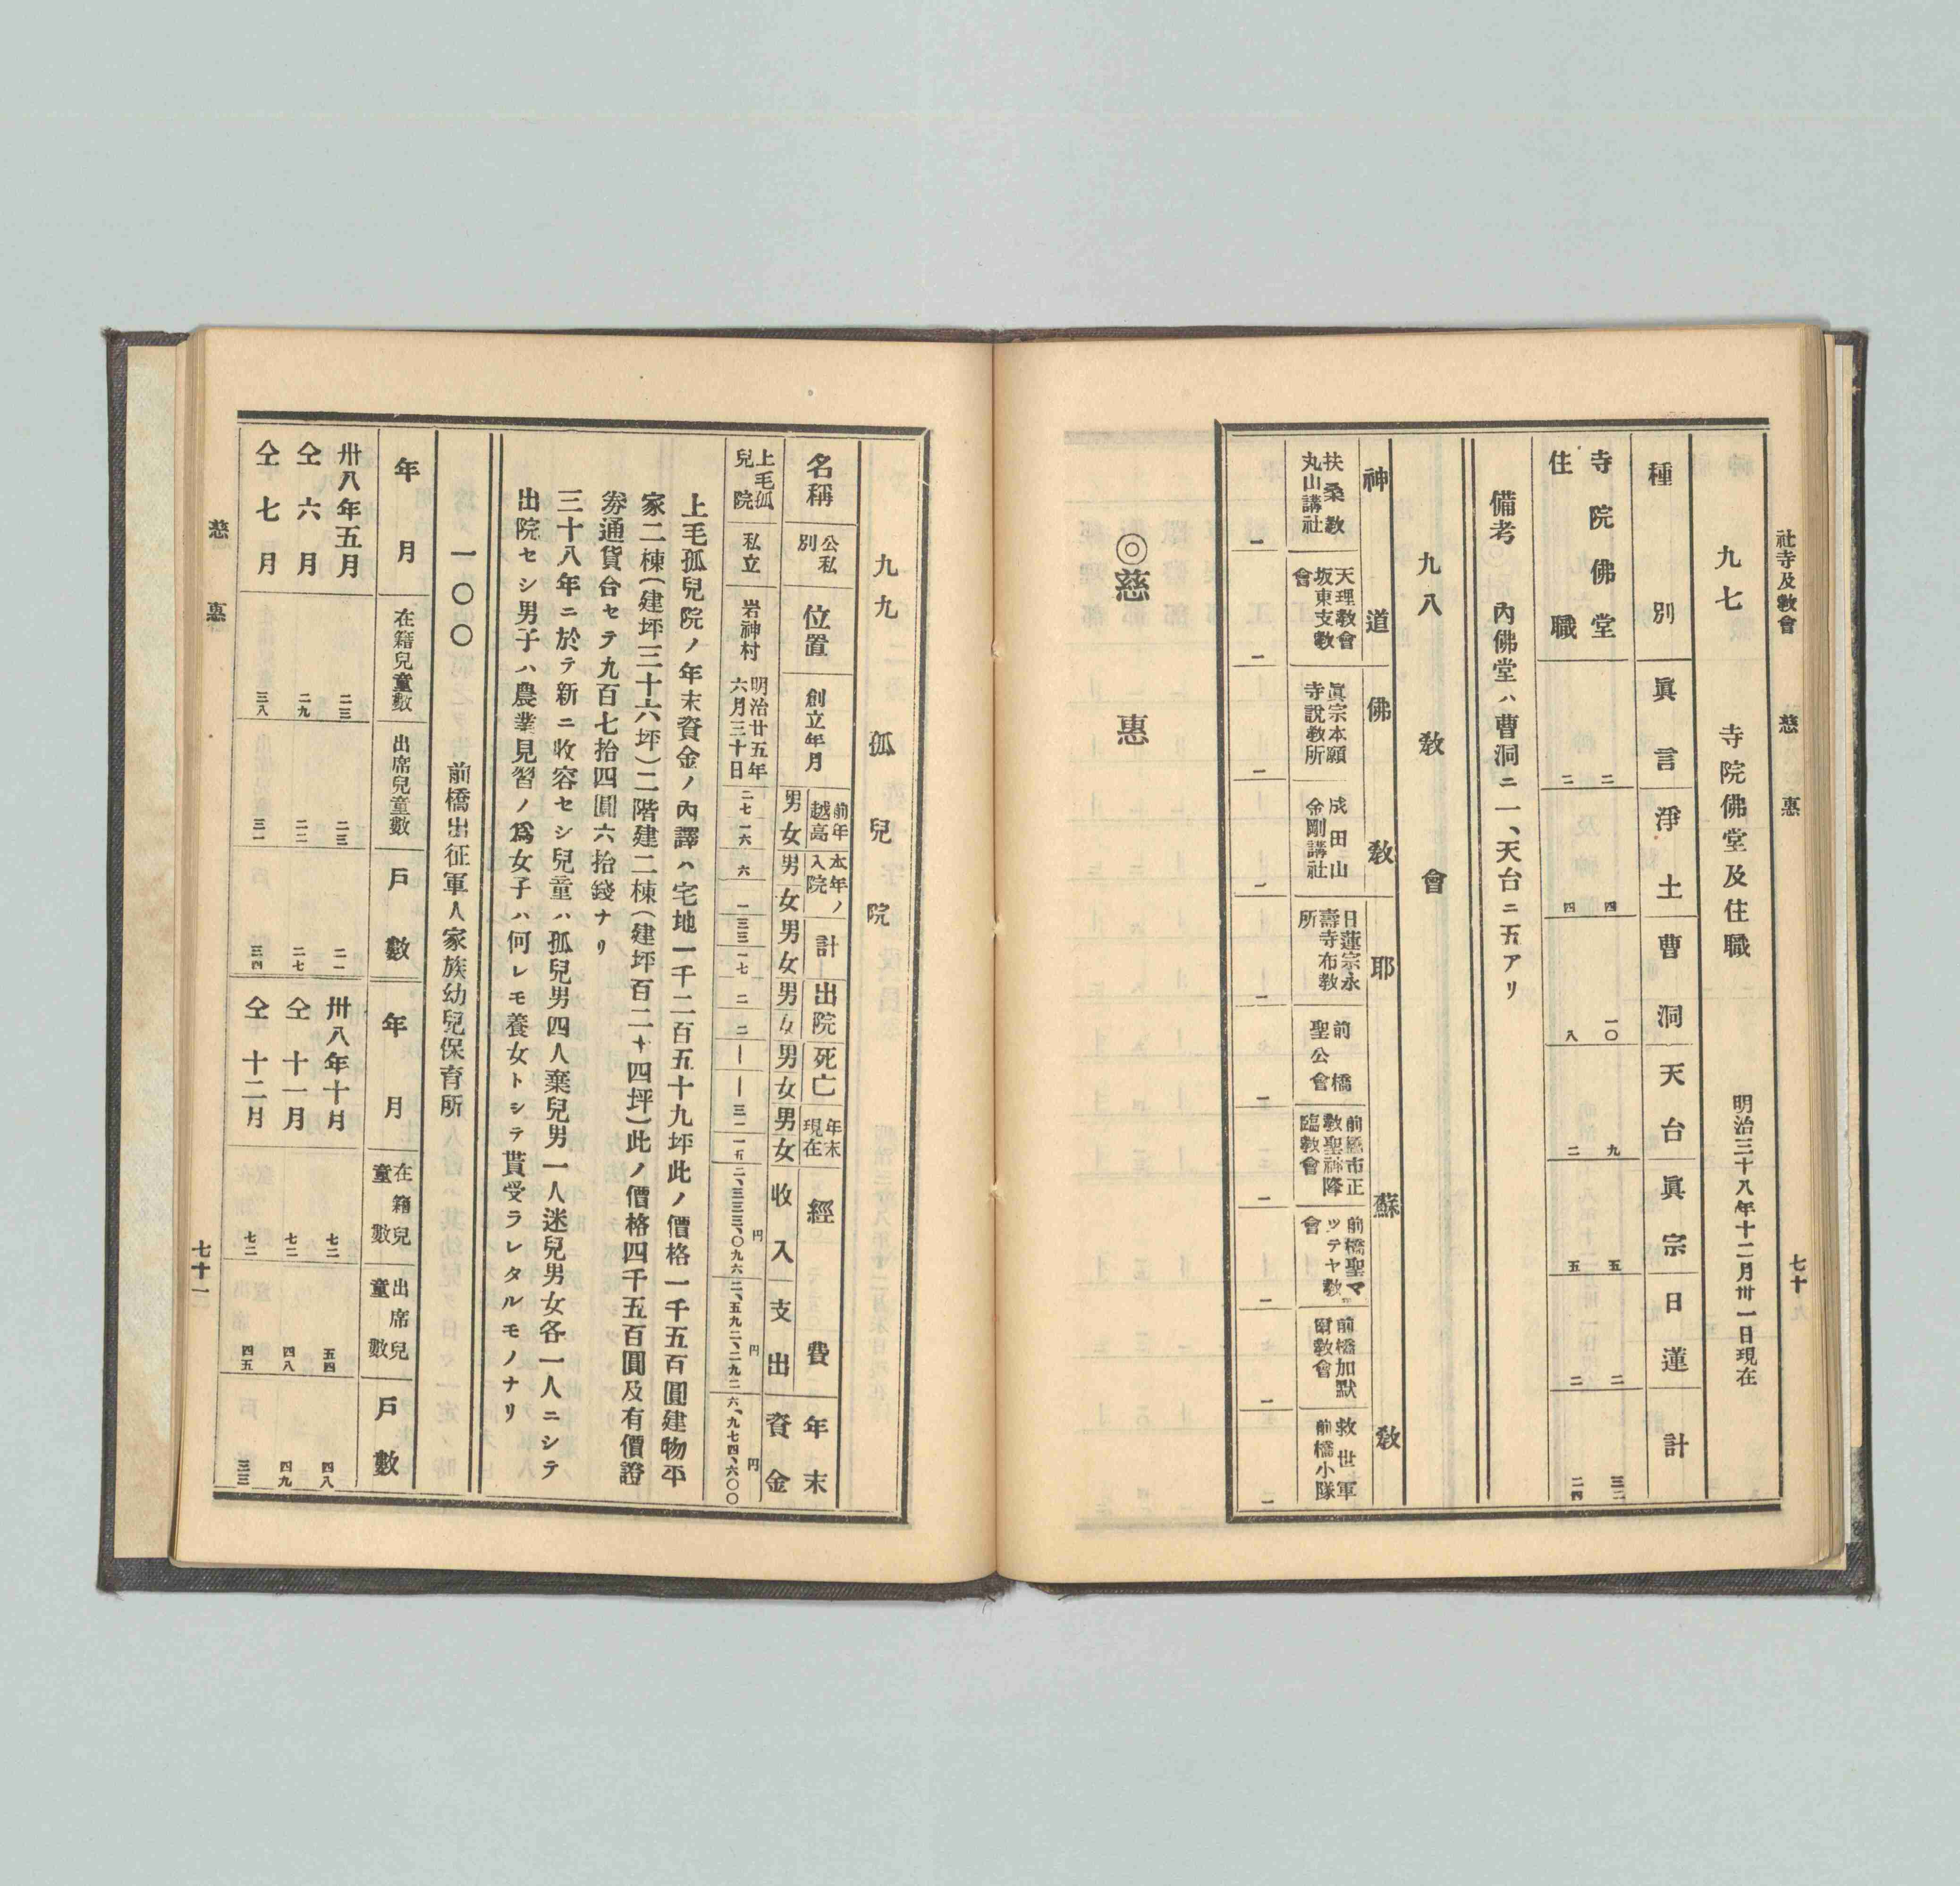 社寺及敎會 慈惠 七十
九七 寺院佛堂及住職 明治三十八年十二月卅一日現在
種別 眞言 淨土 曹洞 天台 眞宗 日蓮 計
寺院佛堂 二 四 一〇 九 五 二 三二
住職 二 四 八 二 五 二 二四
備考 內佛堂ハ曹洞ニ一、天台ニ五アリ
九八 敎會
神道 佛敎 耶蘇敎
扶桑敎丸山講社 一
天理敎會坂東支敎會 一
眞宗本願寺說敎所 一
成田山金剛講社 一
日蓮宗永壽寺布敎所 一
前橋聖公會 一
前橋市正敎聖神降臨敎會 一
前橋聖マツテヤ敎會 一
前橋加默爾敎會 一
救世軍前橋小隊 一
◎慈惠
九九 孤兒院
名稱 公私別 位置 創立年月 前年越高 男 女 本年ノ入院 男 女 計 男 女 出院 男 女 死亡 男 女 年末現在 男 女 經費 收入 支出 年末資金
上毛孤兒院 私立 岩神村 明治廿五年六月三十日 二七 一六 六 一 三三 一七 二 二 ー ー 三一 一五 二、三三三、〇九六円 二、五九二、二九二円 六、九七四、六〇〇円
上毛孤兒院ノ年末資金ノ內譯ハ宅地一千二百五十九坪此ノ價格一千五百圓建物平
家二棟(建坪三十六坪)二階建二棟(建坪百二十四坪)此ノ價格四千五百圓及有價證
劵通貨台セテ九百七拾四圓六拾錢ナリ
三十八年ニ於テ新ニ收容セシ兒童ハ孤兒男四人棄兒男一人迷兒男女各一人ニシテ
出院セシ男子ハ農業見習ノ爲女子ハ何レモ養女トシテ貰受ラレタルモノナリ
一〇〇 前橋出征軍人家族幼兒保育所
年月 在籍兒童數 出席兒童數 戶數 年月 在籍兒童數 出席兒童數 戶數
卅八年五月 二三 二三 二一 卅八年十月 七二 五四 四八
仝六月 二九 二二 二七 仝十一月 七二 四八 四九
仝七月 三八 三一 三四 仝十二月 七二 四五 三三
慈惠 七十一